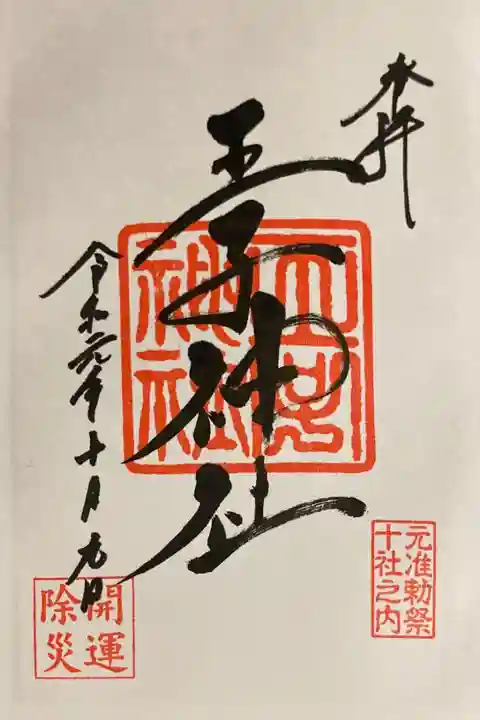 奉拝
王子神社
王子神社
令和元年十月九日
元准勅祭
十社之内
開運
除災